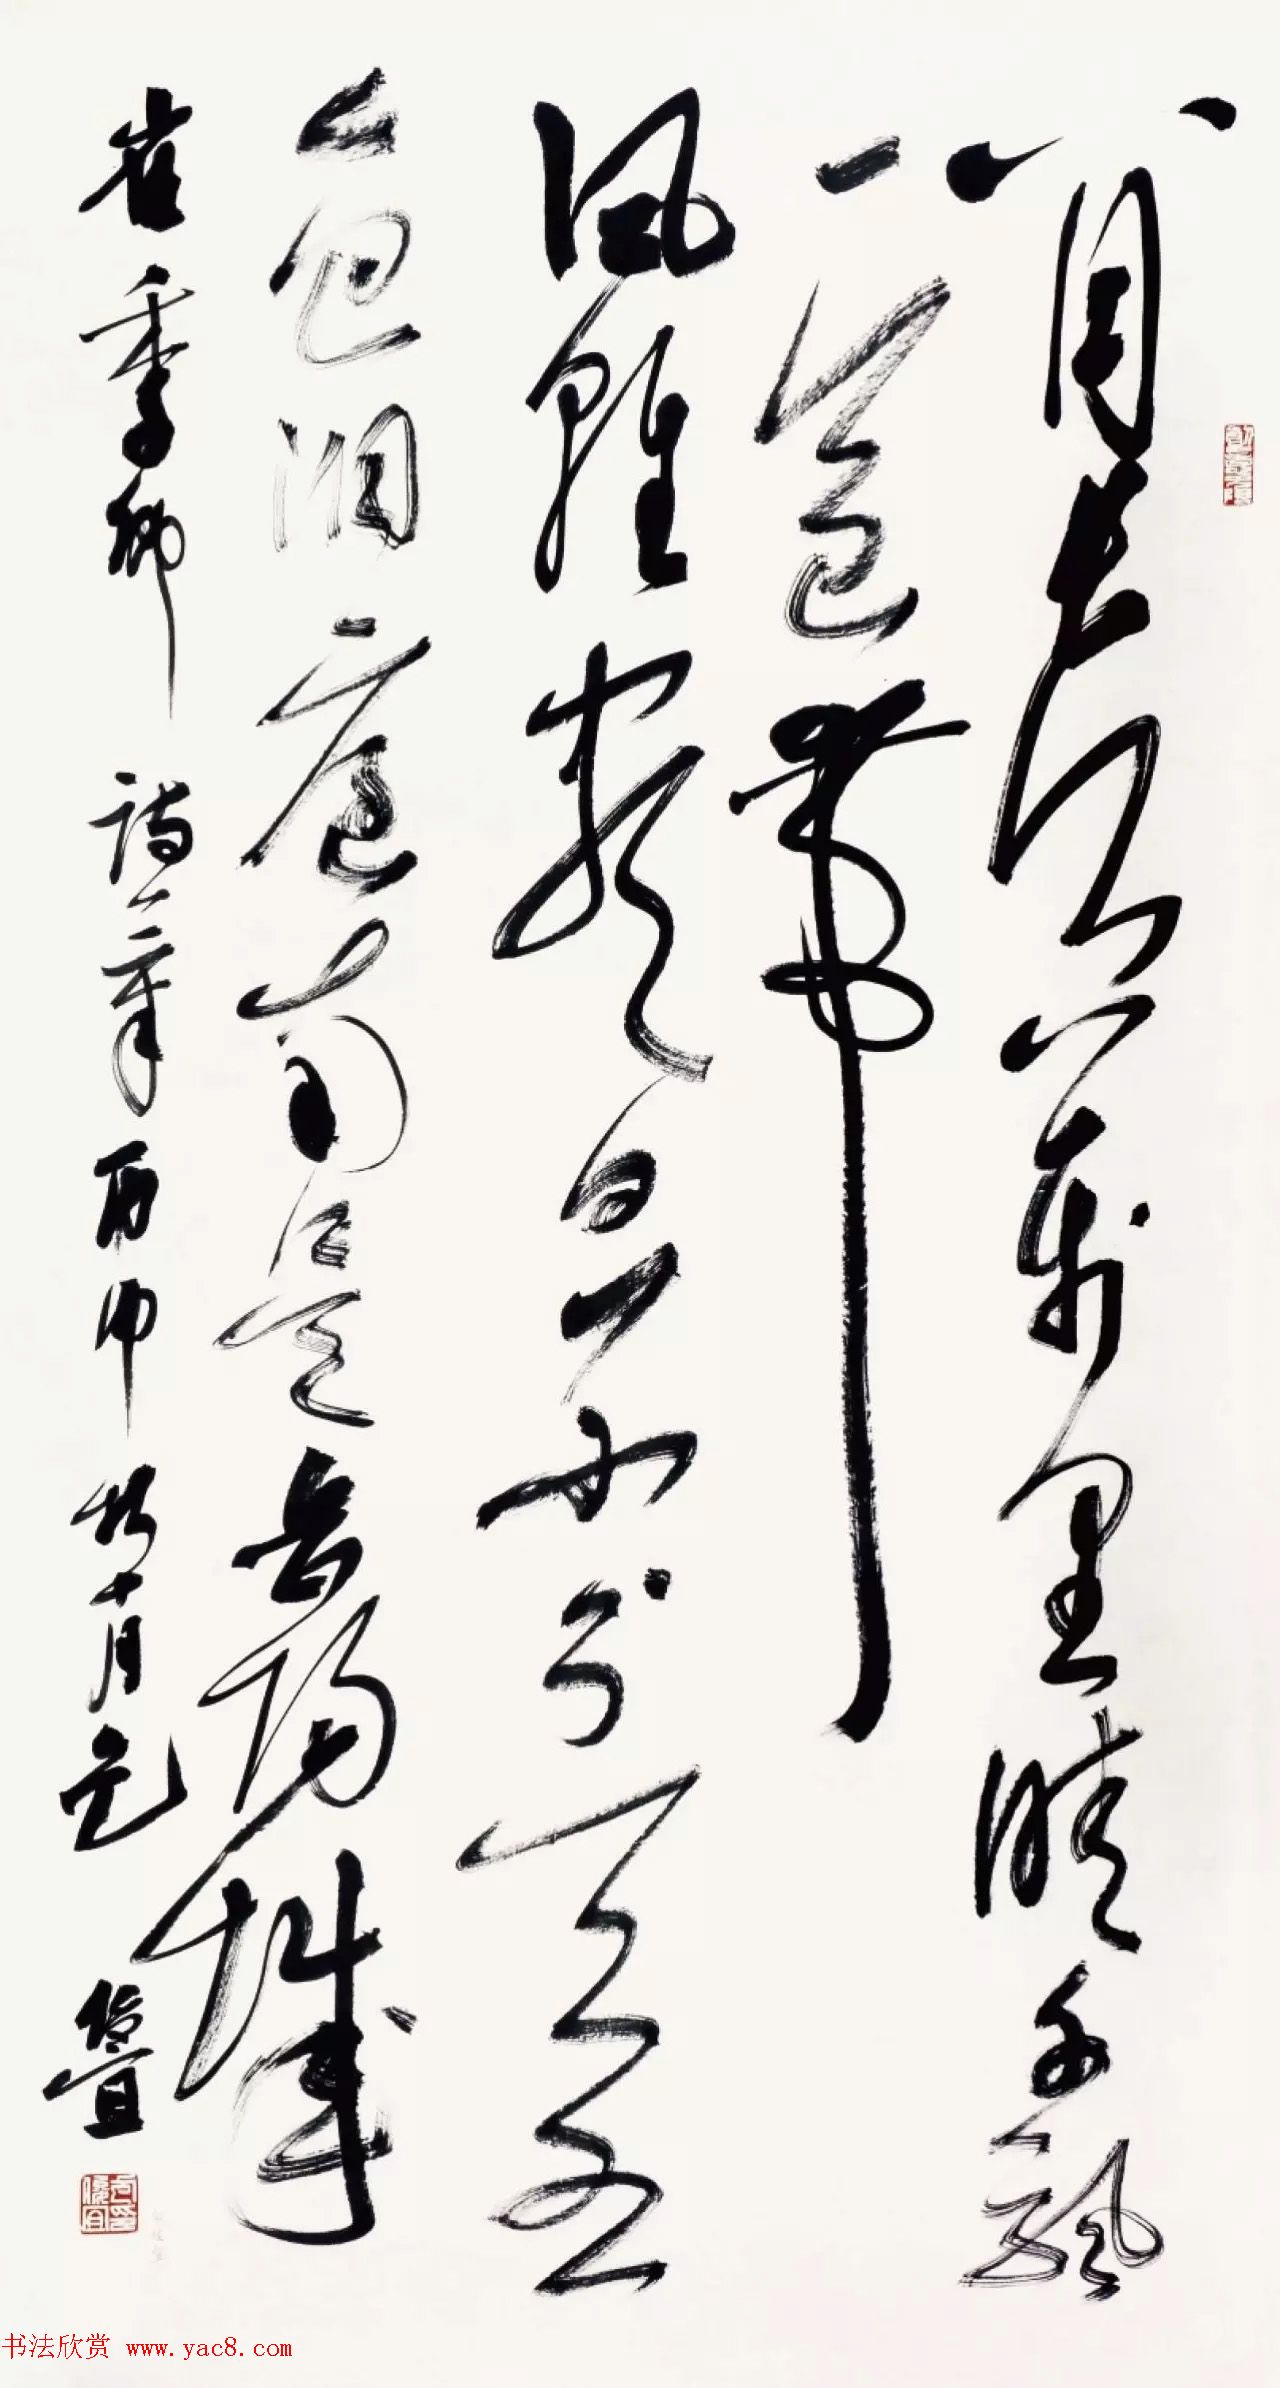 八月长江万里晴千帆
一道带
风轻尽日不分天
色洞庭南是岳阳城
崔季卿诗一章丙申秋十月已俊宜
书法欣赏 www.yac8.com